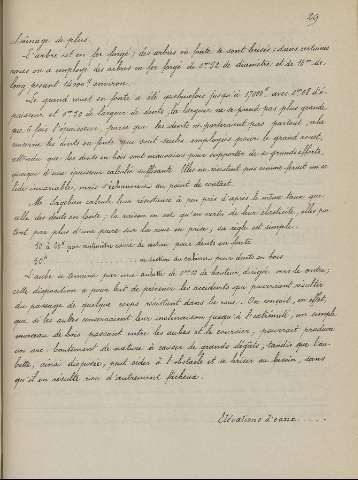 29
drainage de plus.
L'arbre est en fer forgé; des arbres en fonte se sont brisés: dans certaines
roues on a employé des arbres en fer forgé de 0m32 de diamètre, et de 16m de
long pesant environ.
Le grand rouet en fonte a été quelquefois jusqu'à avec d'é-
paisseur et de largeur de dents; la largeur ne se prend pas plus grande
que 6 fois l'épaisseur, parce que les dents ne porteraient pas partout; cela
concerne les dents en fonte qui sont seules employées pour le grand rouet,
attendu que les dents en bois sont mauvaises pour supporter de si grands efforts,
quoique d'une épaisseur calculée suffisante. Elles ne résistent pas comme formant un so-
lide invariable, mais s'échauffent au point de contact.
Mr Sagebien calcule leur résistance à peu près d'après le même taux que
celle des dents en fonte; la raison en est qu'en vertu de leur élasticité, elles por-
tent par plus d'une paire sur la roue en prise; sa règle est simple:
par centimètre carré de section pour dents en fonte
section du calcul pour dents en bois
L'aube se termine par une aubette de hauteur, dirigée vers le centre;
cette disposition a pour but de prévenir les accidents qui pourraient résulter
du passage de quelque corps résistant dans la roue. On conçoit, en effet,
que si les aubes conservaient leur inclinaison jusqu'à l'extrémité, un simple
morceau de bois passant entre les aubes et le coursier, pourrait produire
un arc-boutement de nature à causer de grands dégâts; tandis que l'au-
bette, ainsi disposée, peut céder à l'obstacle et se briser au besoin, sans
qu'il en résulte rien d'autrement fâcheux.
Élévations d'eaux.....